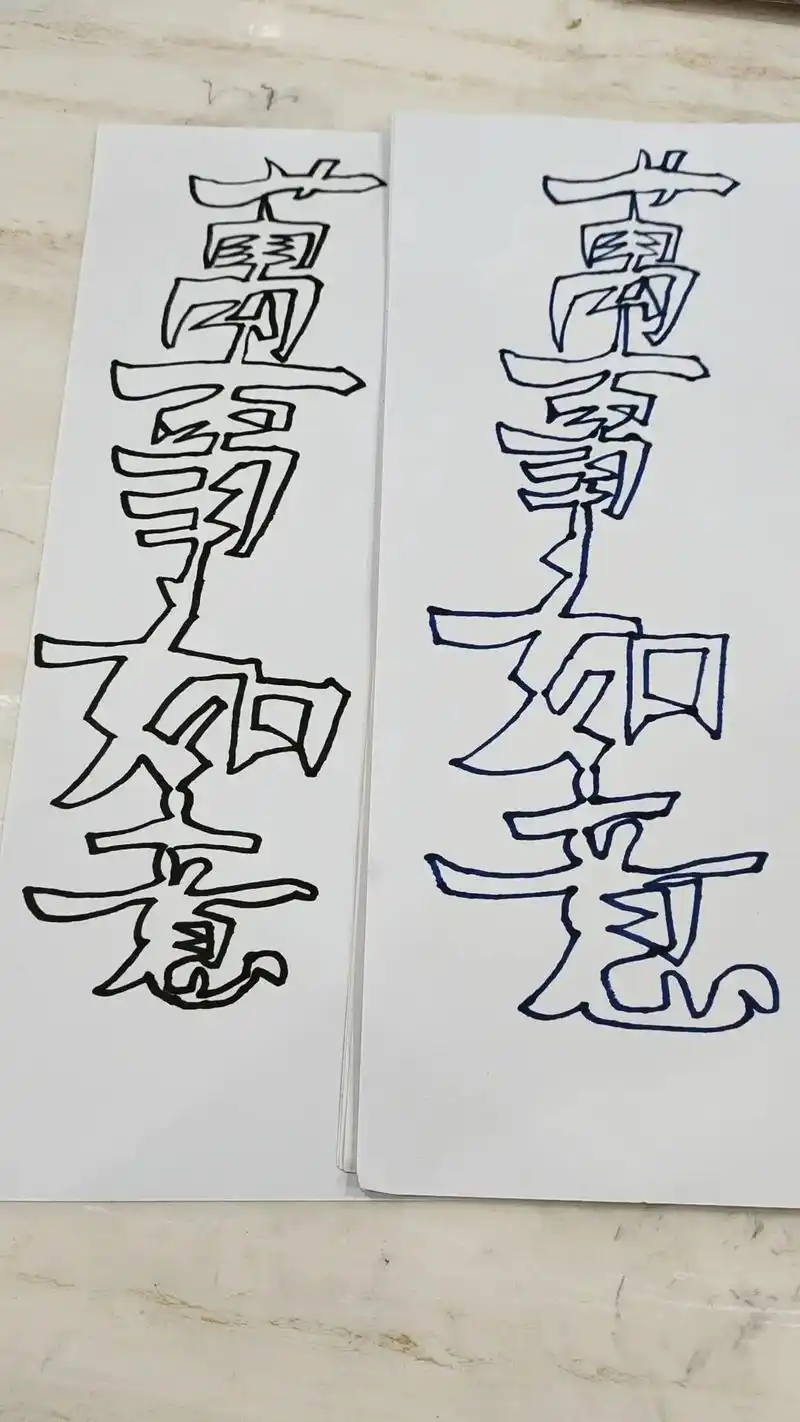 萬事如意
萬事如意